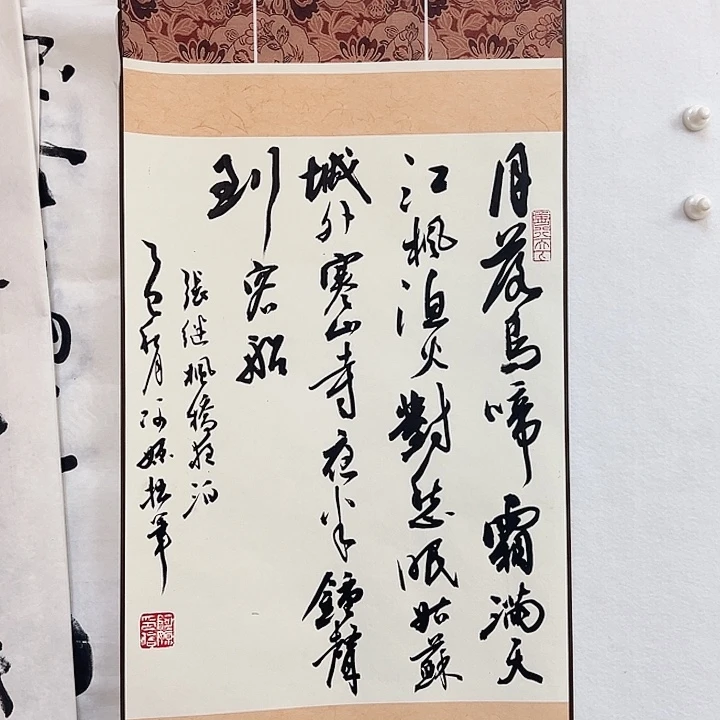 月落烏啼霜滿天
江楓漁火對愁眠姑蘇
城外寒山寺夜半鐘聲
到客船
張继楓橋夜泊
乙巳秋月阿拙筆